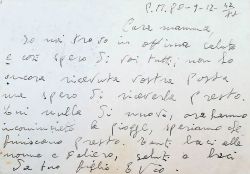 P.M. 80 - 9-12-42
Cara mamma,
Io mi trovo in ottima salute
e così spero di voi tutti, non ho
ancora ricevuta vostra posta
ma spero di riceverla presto.
Qui nulla di nuovo, ora hanno
incominciato la pioggia, speriamo che
finiscano presto. Tanti baci alla
nonna e saluti e baci
da tuo figlio